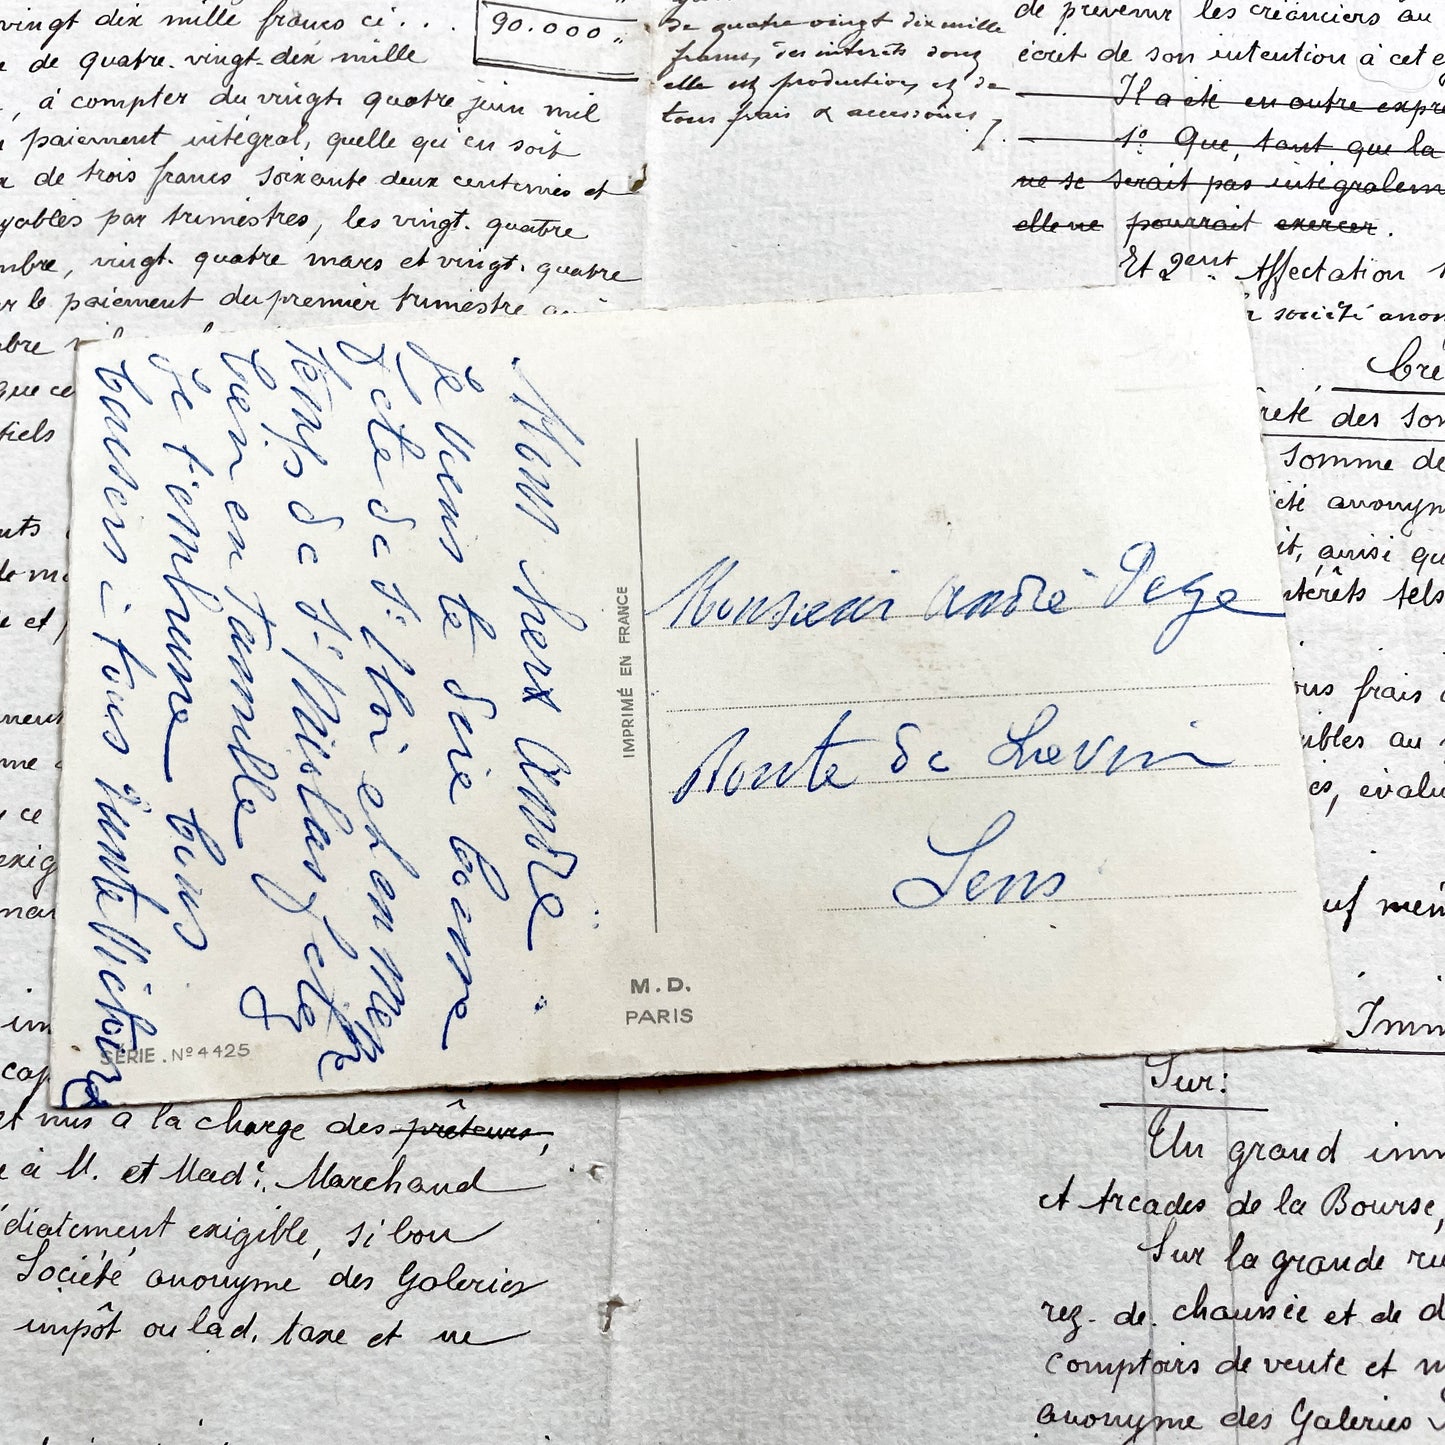 vingt dix mille francs ci . . .
90.000 "
de quatre vingt dix mille
à compter du vingt quatre juin mil
paiement intégral, quelle qu'en soit
de trois francs soixante deux centimes et
yables par trimestres, les vingt quatre
mbre, vingt quatre mars et vingt quatre
le paiement du premier trimestre
mbre
que ce
tiels
de quatre vingt dix mille
francs, des intérêts dont
elle est production, et de
tous frais & accessoires
de prévenir les créanciers au
écrit de son intention à cet e
Il a été en outre expre
1º Que, tant que la
ne se serait pas intégralem
elle ne pourrait exercer.
Et 2ent Affectation
société anon
Cré
reté des so
somme de
été anonym
it, ainsi qu
ntérêts tels
ous frais
ibles au
es, évalu
uf mém
Imm
Sur:
Un grand imm
et Arcades de la Bourse,
Sur la grande ru
rez-de-chaussée et de d
comptoirs de vente et m
anonyme des Galeries
Mon cher André
Je viens te dire bonne
fête de St Eloi et en même
temps de St Nicolas fêter
bien en famille
Je t'embrasse bons
baisers à tous tante Victorine
SÉRIE . Nº 4425
IMPRIMÉ EN FRANCE
M. D.
PARIS
Monsieur André
Route de Lievin
Lens
nts
et
ce
exig
im
cap
et mis à la charge des prêteurs,
à M. et Madᵉ. Marchand
édiatement exigible, si bon
Société anonyme des Galeries
impôt ou lad. taxe et ne